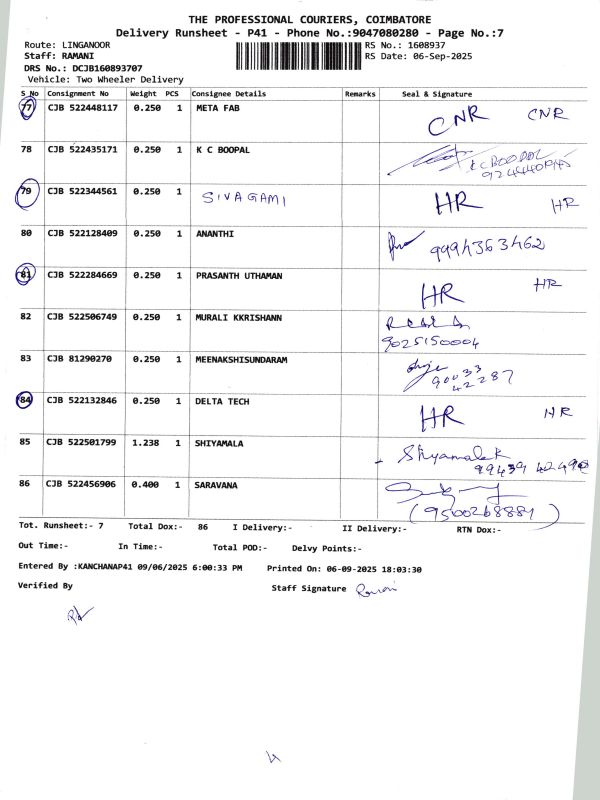 THE PROFESSIONAL COURIERS, COIMBATORE
Delivery Runsheet - P41 - Phone No.:9047080280 - Page No.:7
Route: LINGANOOR RS No.: 1608937
Staff: RAMANI RS Date: 06-Sep-2025
DRS No.: DCJB160893707
Vehicle: Two Wheeler Delivery
S_No Consignment No Weight PCS Consignee Details Remarks Seal & Signature
77 CJB 522448117 0.250 1 META FAB CNR CNR
78 CJB 522435171 0.250 1 K C BOOPAL K C BOOPAL
79 CJB 522344561 0.250 1 SIVAGAMI HR HR
80 CJB 522128409 0.250 1 ANANTHI 9994363462
81 CJB 522284669 0.250 1 PRASANTH UTHAMAN HR HR
82 CJB 522506749 0.250 1 MURALI KKRISHANN
9025150004
83 CJB 81290270 0.250 1 MEENAKSHISUNDARAM 90033
42287
84 CJB 522132846 0.250 1 DELTA TECH HR HR
85 CJB 522501799 1.238 1 SHIYAMALA Shyamala K
86 CJB 522456906 0.400 1 SARAVANA
(9500268881)
Tot. Runsheet:- 7 Total Dox:- 86 I Delivery:- II Delivery:- RTN Dox:-
Out Time:- In Time:- Total POD:- Delvy Points:-
Entered By :KANCHANAP41 09/06/2025 6:00:33 PM Printed On: 06-09-2025 18:03:30
Verified By Staff Signature Ramani